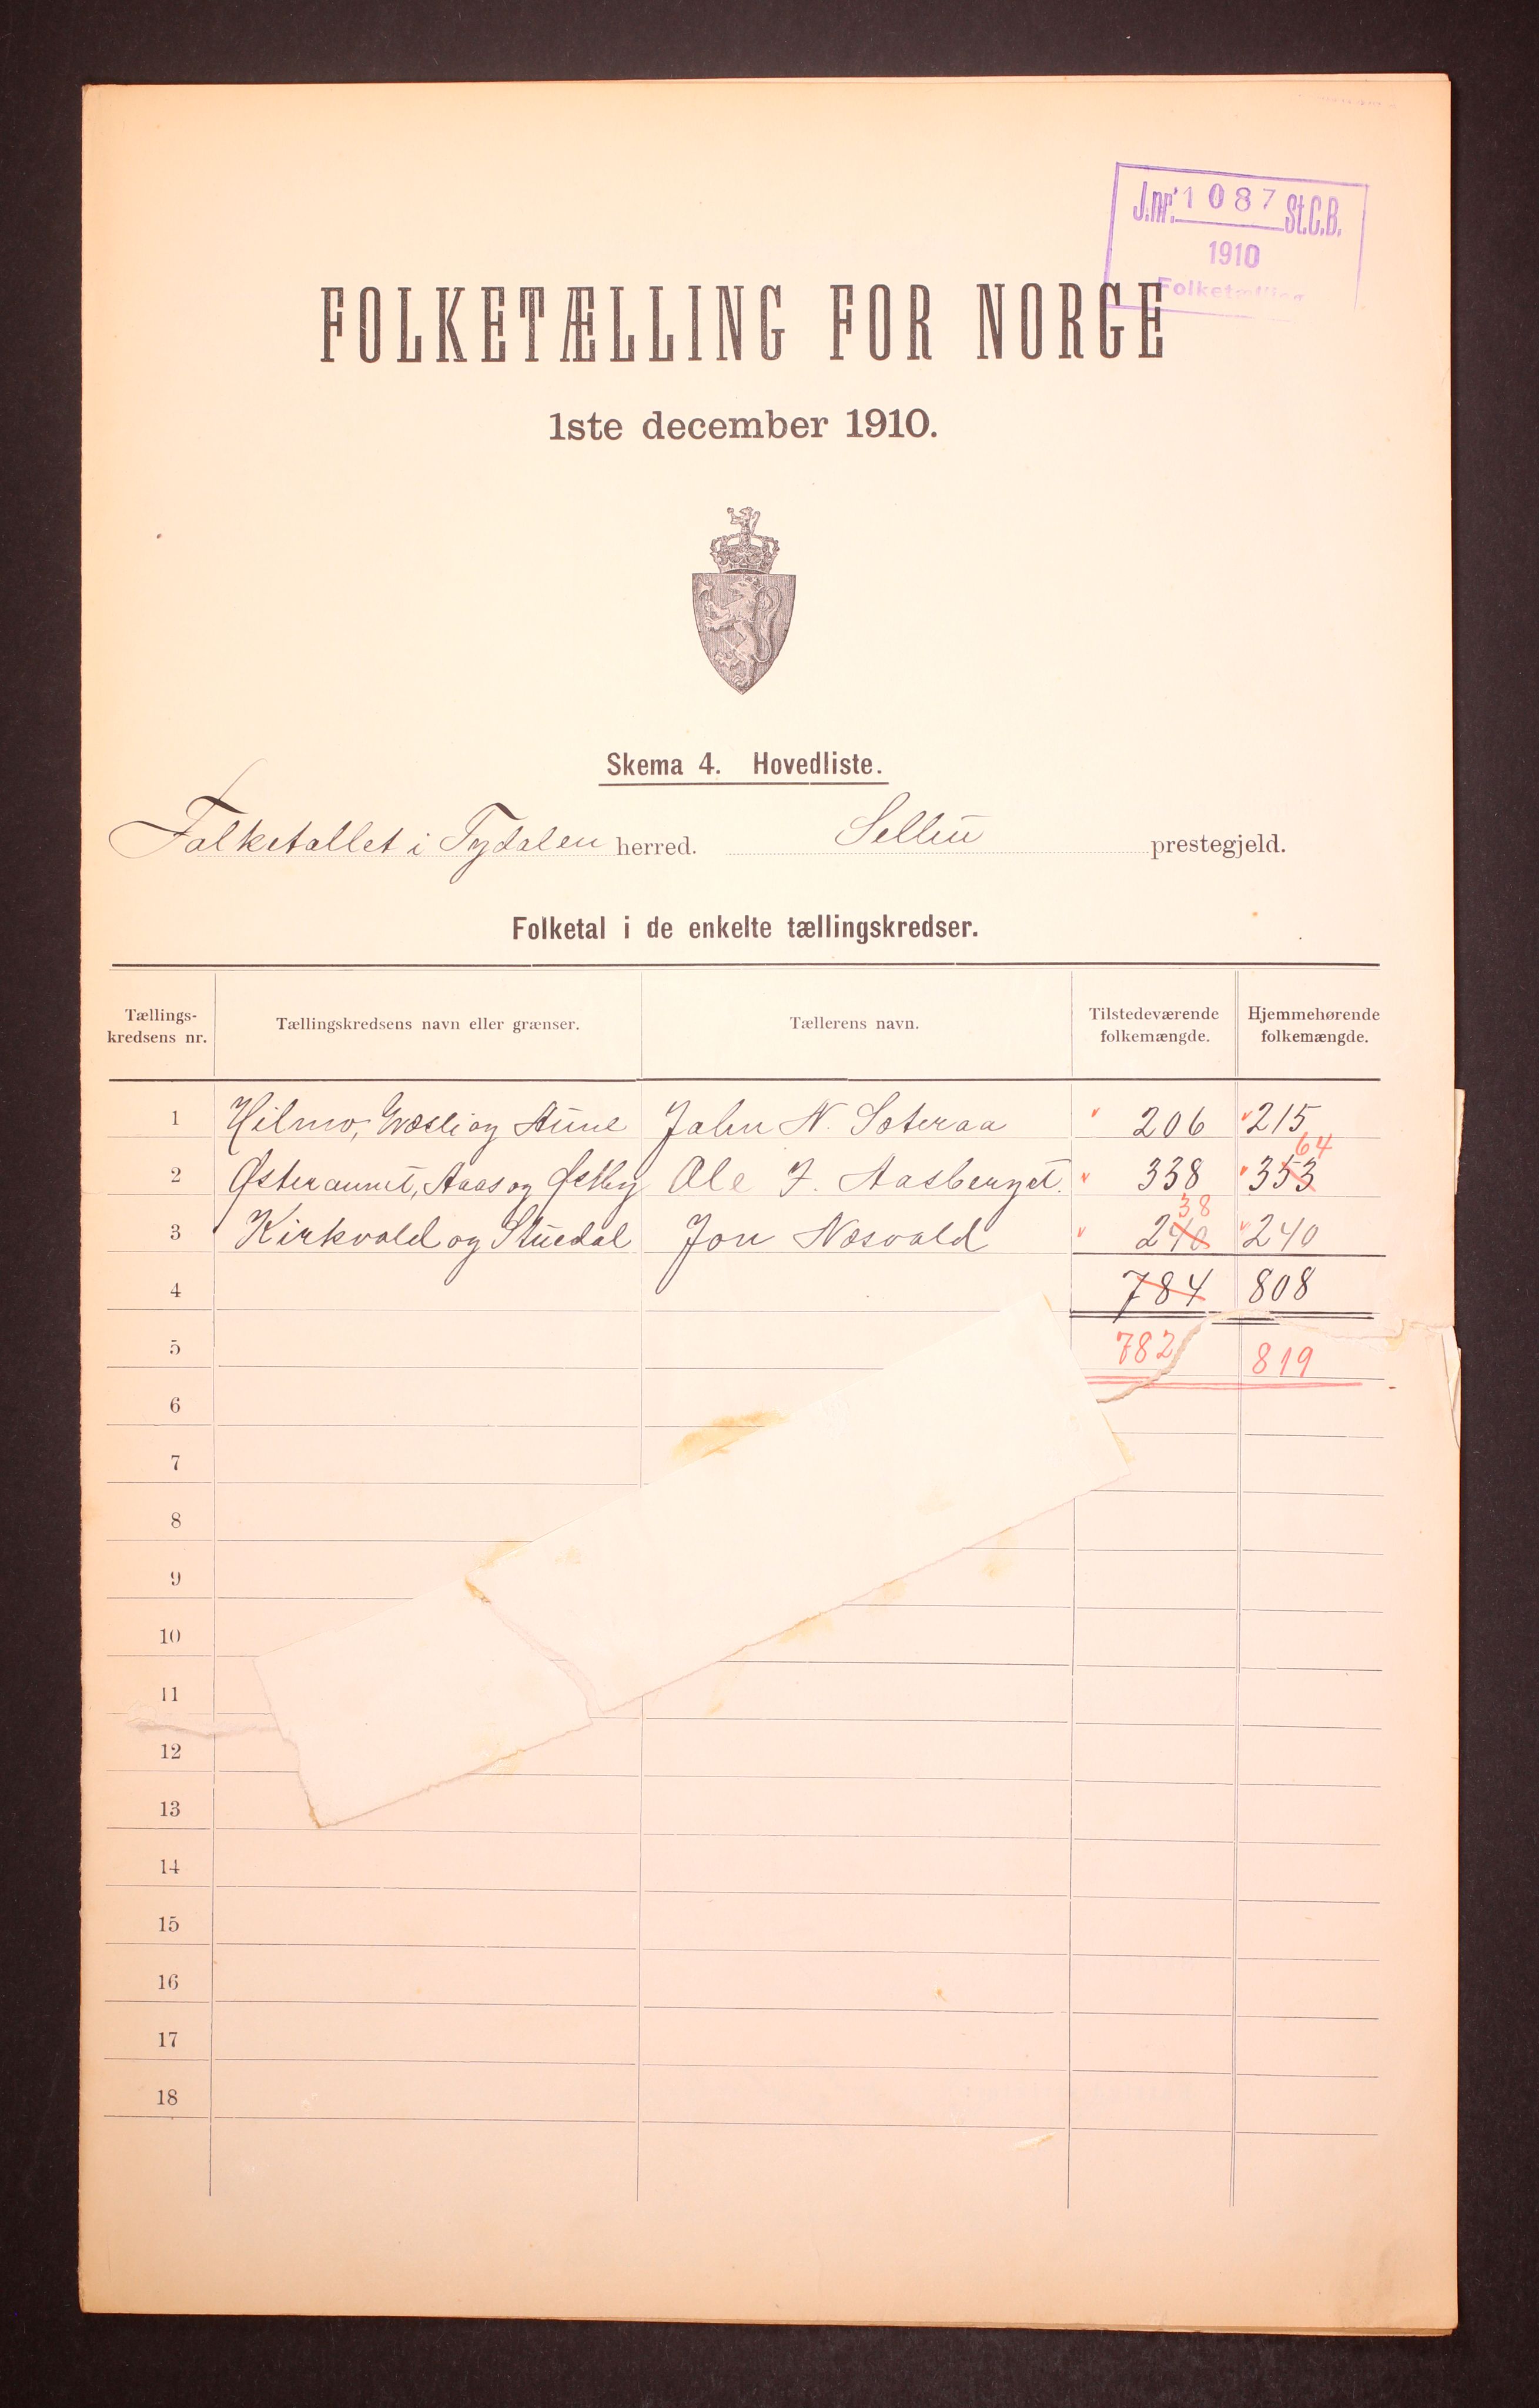 J.nr. 1087 St.C.B.
1910
Folketælling
FOLKETÆLLING FOR NORGE
1ste december 1910.
Skema 4. Hovedliste.
Folketallet i Tydalen herred. Selbu prestegjeld.
Folketal i de enkelte tællingskredser.
Tællings-kredsens nr. Tællingskredsens navn eller grænser. Tællerens navn. Tilstedeværende folkemængde. Hjemmehørende folkemængde.
1 Hilmo, Græsli og Aune John N. Soteraa 206 215
64
2 Østeraunet, Aas og Østby Ole J. Aasberget. 338 353
38
3 Kirkvold og Stuedal Jon Næsvold 240 240
4 784 808
5 782 819
6
7
8
9
10
11
12
13
14
15
16
17
18